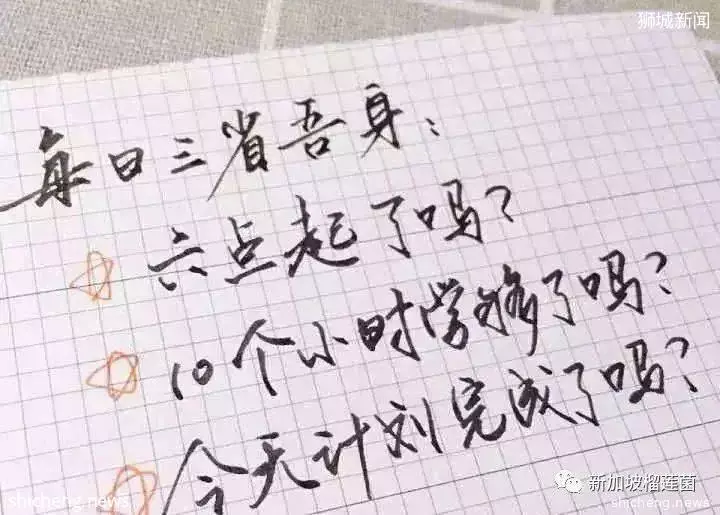 狮城新闻
每日三省吾身：
六点起了吗？
10个小时学够了吗？
今天计划完成了吗？
新加坡榴莲菌
shicheng.news
shicheng.news